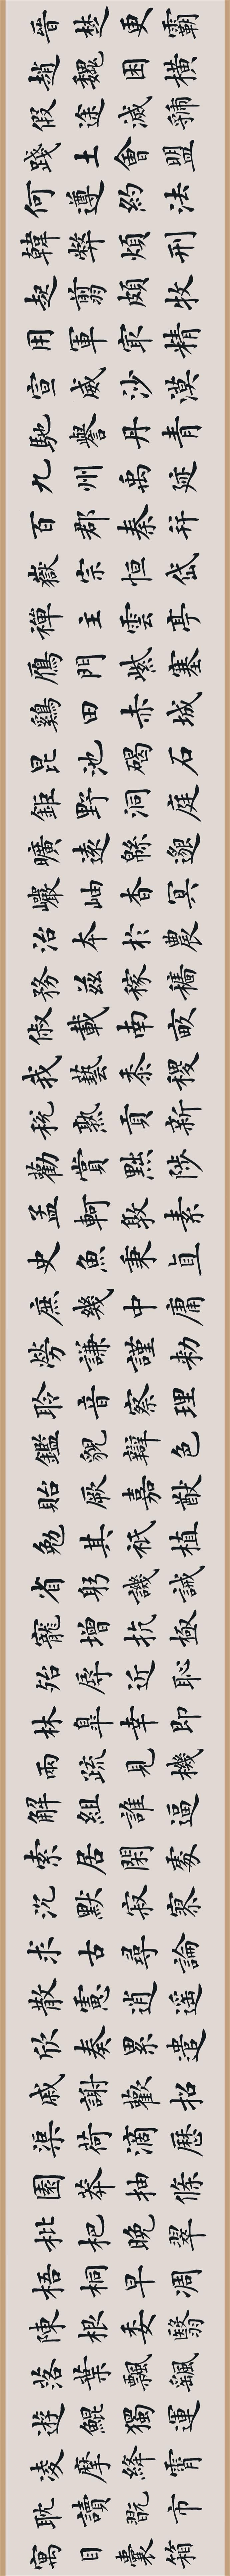 晉楚更霸
趙魏困橫
假途滅虢
踐土會盟
何遵約法
韓弊煩刑
起翦頗牧
用軍最精
宣威沙漠
馳譽丹青
九州禹迹
百郡秦并
嶽宗恒岱
禪主雲亭
鴈門紫塞
鷄田赤城
昆池碣石
鉅野洞庭
曠遠緜邈
巖岫杳冥
治本於農
務茲稼穡
俶載南畝
我藝黍稷
稅熟貢新
勸賞黜陟
孟軻敦素
史魚秉直
庶幾中庸
勞謙謹勅
聆音察理
鑑貌辯色
貽厥嘉猷
勉其祗植
省躬譏誡
寵增抗極
殆辱近恥
林皐幸即
兩疏見機
解組誰逼
索居閑處
沉默寂寥
求古尋論
散慮逍遥
欣奏累遣
慼謝歡招
渠荷滴歷
園莽抽條
枇杷晚翠
梧桐早凋
陳根委翳
落葉飄颻
遊鯤獨運
凌摩絳霄
耽讀翫市
寓目囊箱